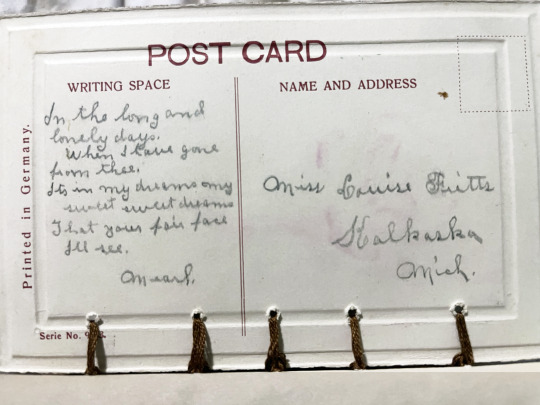 POST CARD
WRITING SPACE
NAME AND ADDRESS
Printed in Germany.
In the long and
lonely days.
When I have gone
from thee.
Its in my dreams my
sweet sweet dreams
That your fair face
I'll see.
Miss Louise Fritts
Kalkaska
Mich.
Serie No.